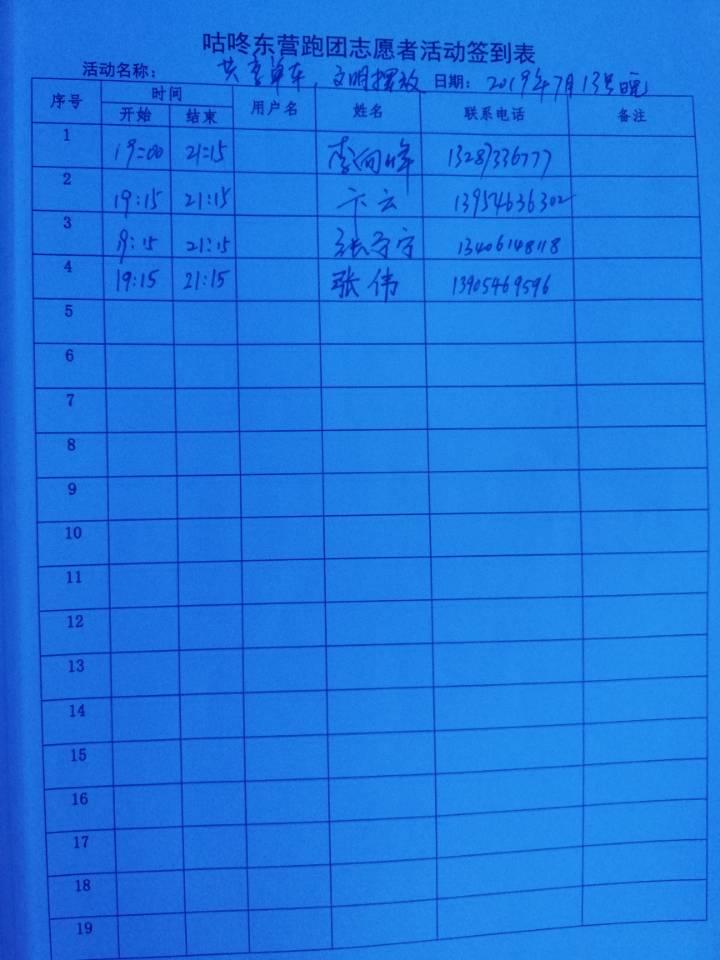 咕咚东营跑团志愿者活动签到表
活动名称: 共享单车,文明摆放 日期: 2019年7月13号晚
序号 时间 用户名 姓名 联系电话 备注
开始 结束
1 19:00 21:15 李向峰 13287336777
2 19:15 21:15 卞云 13954636302
3 19:15 21:15 张守宁 13406148118
4 19:15 21:15 张伟 13905469596
5
6
7
8
9
10
11
12
13
14
15
16
17
18
19